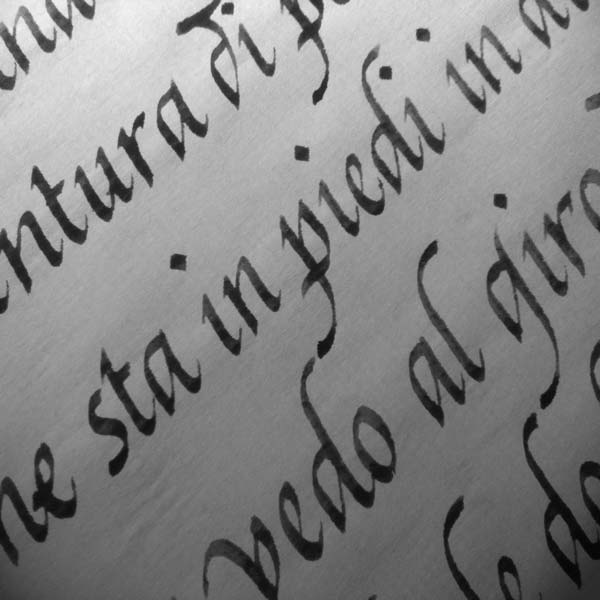 ntura di p
ne sta in piedi in a
vedo al giro